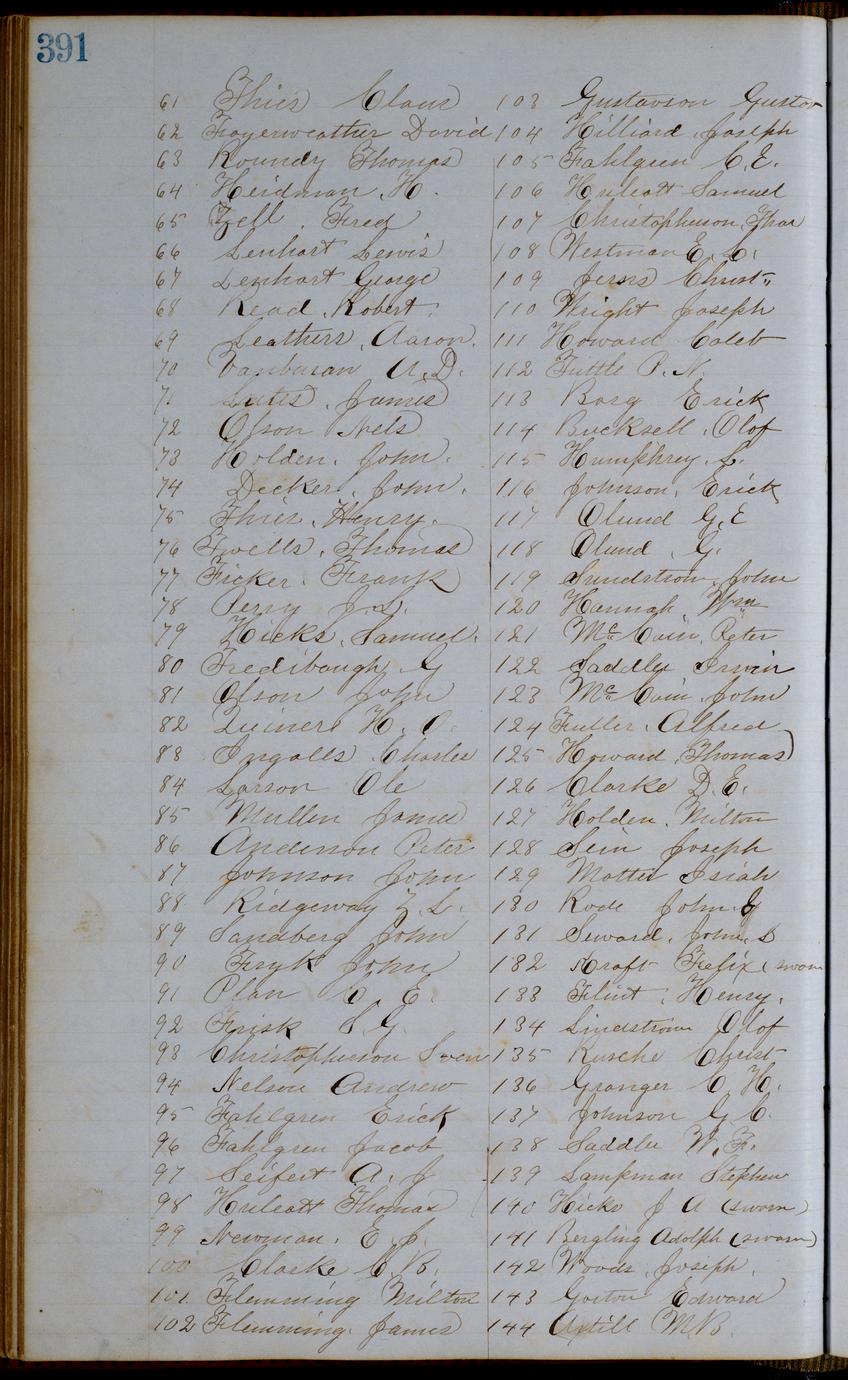 391
61 Thies Claus
62 Fayerweather David
63 Roundy Thomas
64 Heidman H.
65 Zell Fred
66 Lenhart Lewis
67 Lenhart George
68 Read Robert
69 Leathers, Aaron
70 Vanburan A. D.
71 Lutes, James
72 Olson Nels
73 Holden, John
74 Decker, John
75 Thies, Henry
76 Twells, Thomas
77 Ficker Frank
78 Perry J. L.
79 Hicks, Samuel
80 Fredibaugh G
81 Olson John
82 Quiner H. O.
83 Ingalls Charles
84 Larson Ole
85 Mullen James
86 Anderson Peter
87 Johnson John
88 Ridgeway Z. L.
89 Sandberg John
90 Fryk John
91 Plan C. E.
92 Frisk S. G.
93 Christopherson Sven
94 Nelson Andrew
95 Fahlgren Erick
96 Fahlgren Jacob
97 Seifert A. J
98 Huleatt Thomas
99 Newman, E. J.
100 Clarke C. B.
101 Flemming Milton
102 Flemming James
103 Gustavson Gustav
104 Hilliard, Joseph
105 Fahlgren C. E.
106 Huleatt Samuel
107 Christopherson, Thor
108 Westman E. L.
109 Jerss Christ
110 Wright Joseph
111 Howard Caleb
112 Tuttle P. N.
113 Borg Erick
114 Bucksell, Olof
115 Humphrey, L.
116 Johnson, Erick
117 Olund G. E
118 Olund G.
119 Sundstrom, John
120 Hannah, Wm
121 Mc Cain, Peter
122 Saddler Irwin
123 Mc Cain, John
124 Fuller, Alfred
125 Howard, Thomas
126 Clarke D. E.
127 Holden, Milton
128 Sein Joseph
129 Motter Isiah
130 Rode John G
131 Seward, John S
132 Kraft Felix (sworn
133 Flint, Henry
134 Lindstrom Olof
135 Rusche Christ
136 Granger C. H.
137 Johnson G. C.
138 Saddler W. F.
139 Lampman Stephen
140 Hicks J A (sworn)
141 Bergling Adolph (sworn)
142 Woods, Joseph
143 Gorton Edward
144 M. B.